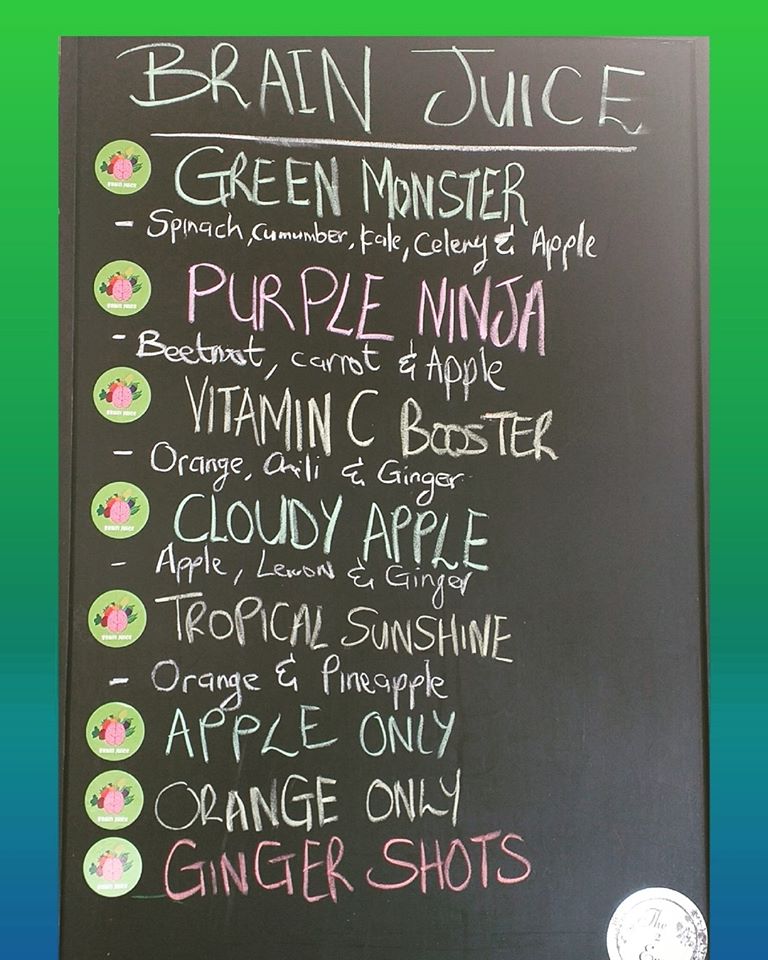 BRAIN JUICE
GREEN MONSTER
- Spinach, Cumumber, Kale, Celery & Apple
PURPLE NINJA
- Beetroot, carrot & Apple
VITAMIN C BOOSTER
- Orange, Chili & Ginger
CLOUDY APPLE
- Apple, Lemon & Ginger
TROPICAL SUNSHINE
- Orange & Pineapple
APPLE ONLY
ORANGE ONLY
GINGER SHOTS
BRAIN JUICE
BRAIN JUICE
BRAIN JUICE
BRAIN JUICE
BRAIN JUICE
BRAIN JUICE
BRAIN JUICE
BRAIN JUICE
The
2